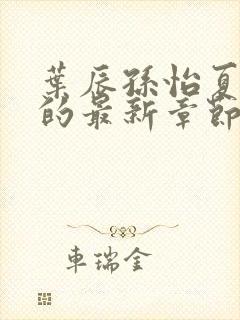 葉辰孫怡夏
的最新章節
車瑞金